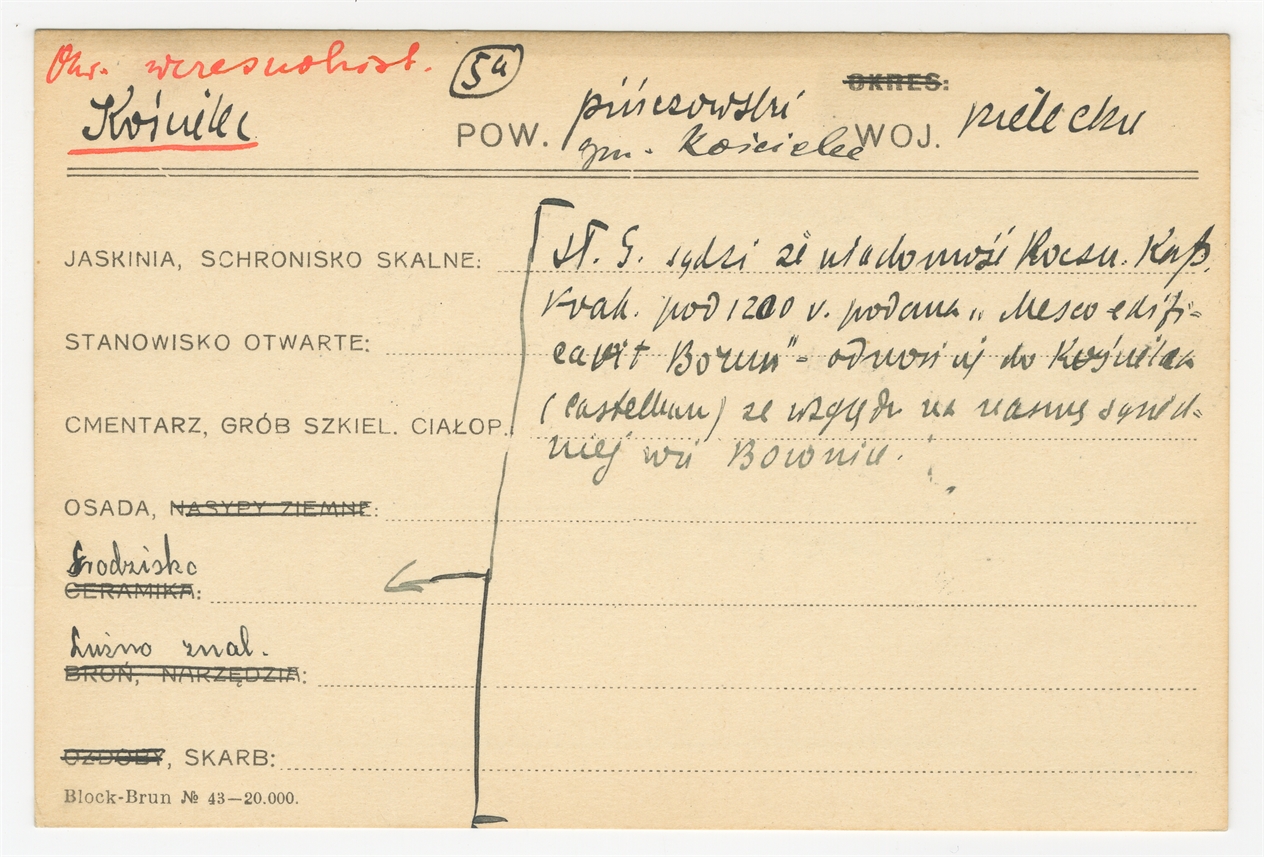 Okr. wczesnohist.
5a
OKRES:
Kościelec
POW. pińczowski WOJ. kielecki
gm. Kościelec
JASKINIA, SCHRONISKO SKALNE:
St. G. sądzi że wiadomość Roczn. Kap.
Krak. pod 1200 r. podana „Mesco edifi-
STANOWISKO OTWARTE:
cavit Borun" - odnosi się do Kościelca
(castellum) ze względu na nazwę sąsied-
CMENTARZ, GRÓB SZKIEL. CIAŁOP.:
niej wsi Boronic.
OSADA, NASYPY ZIEMNE:
Grodzisko
CERAMIKA:
Luźno znal.
BROŃ, NARZĘDZIA:
OZDOBY, SKARB:
Block-Brun № 43—20.000.